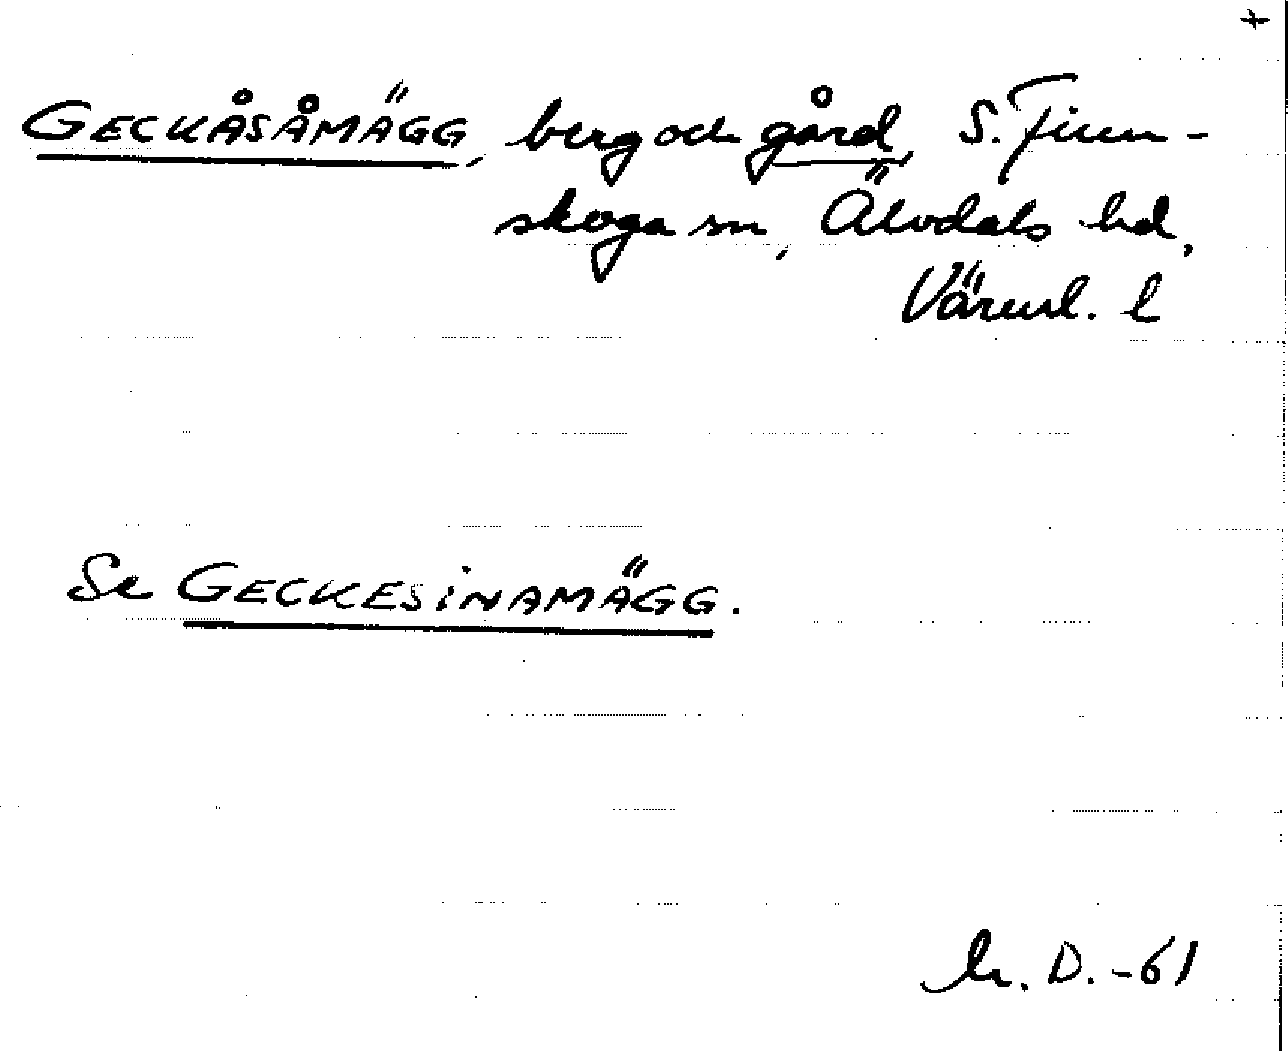 +
GECKÅSÅMÄGG, berg och gård, S. Finn-
skoga sn, Älvdals hd,
Värml. l
Se GECKESINAMÄGG.
D. -61